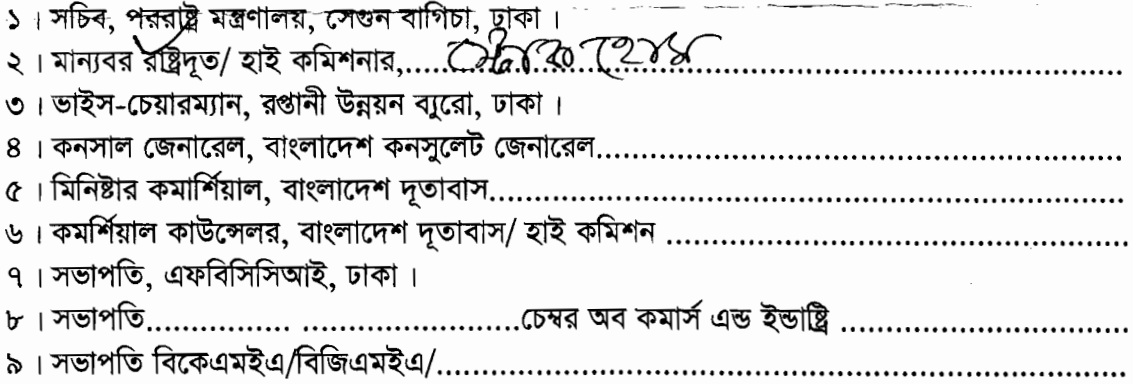 ১। সচিব, পররাষ্ট্র মন্ত্রণালয়, সেগুন বাগিচা, ঢাকা।
২। মান্যবর রাষ্ট্রদূত/ হাই কমিশনার,..........................................................
৩। ভাইস-চেয়ারম্যান, রপ্তানী উন্নয়ন ব্যুরো, ঢাকা।
৪। কনসাল জেনারেল, বাংলাদেশ কনসুলেট জেনারেল..........................................................
৫। মিনিষ্টার কমার্শিয়াল, বাংলাদেশ দূতাবাস..........................................................
৬। কমর্শিয়াল কাউন্সেলর, বাংলাদেশ দূতাবাস/ হাই কমিশন ..........................................................
৭। সভাপতি, এফবিসিসিআই, ঢাকা।
৮। সভাপতি................. .........................চেম্বর অব কমার্স এন্ড ইন্ডাষ্ট্রি ..................................
৯। সভাপতি বিকেএমইএ/বিজিএমইএ/..........................................................